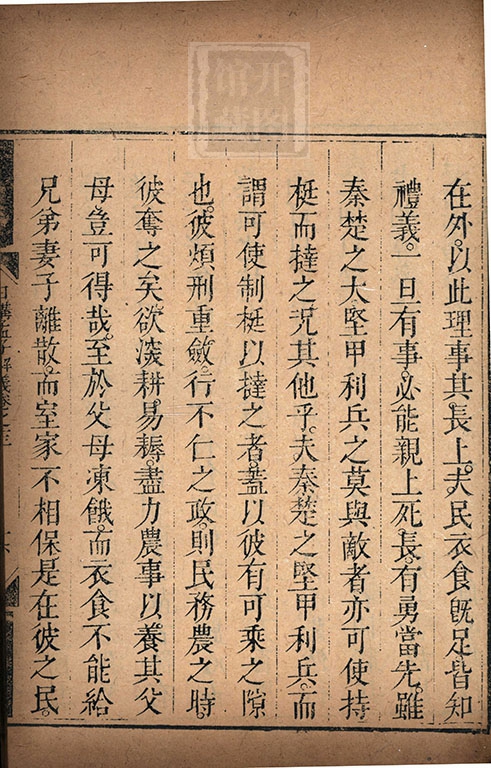 在外。以此理事其長上。夫民衣食既足。皆知
禮義。一旦有事。必能親上死長。有勇當先。雖
秦楚之大。堅甲利兵之莫與敵者。亦可使持
梃而撻之。况其他乎。夫秦楚之堅甲利兵。而
謂可使制梃以撻之者。葢以彼有可乘之隙
也。彼煩刑重斂。行不仁之政。則民務農之時。
彼奪之矣。欲深耕易耨。盡力農事以養其父
母。豈可得哉。至於父母凍餓。而衣食不能給
兄弟妻子離散。而室家不相保。是在彼之民。
日講孟子解義卷之三